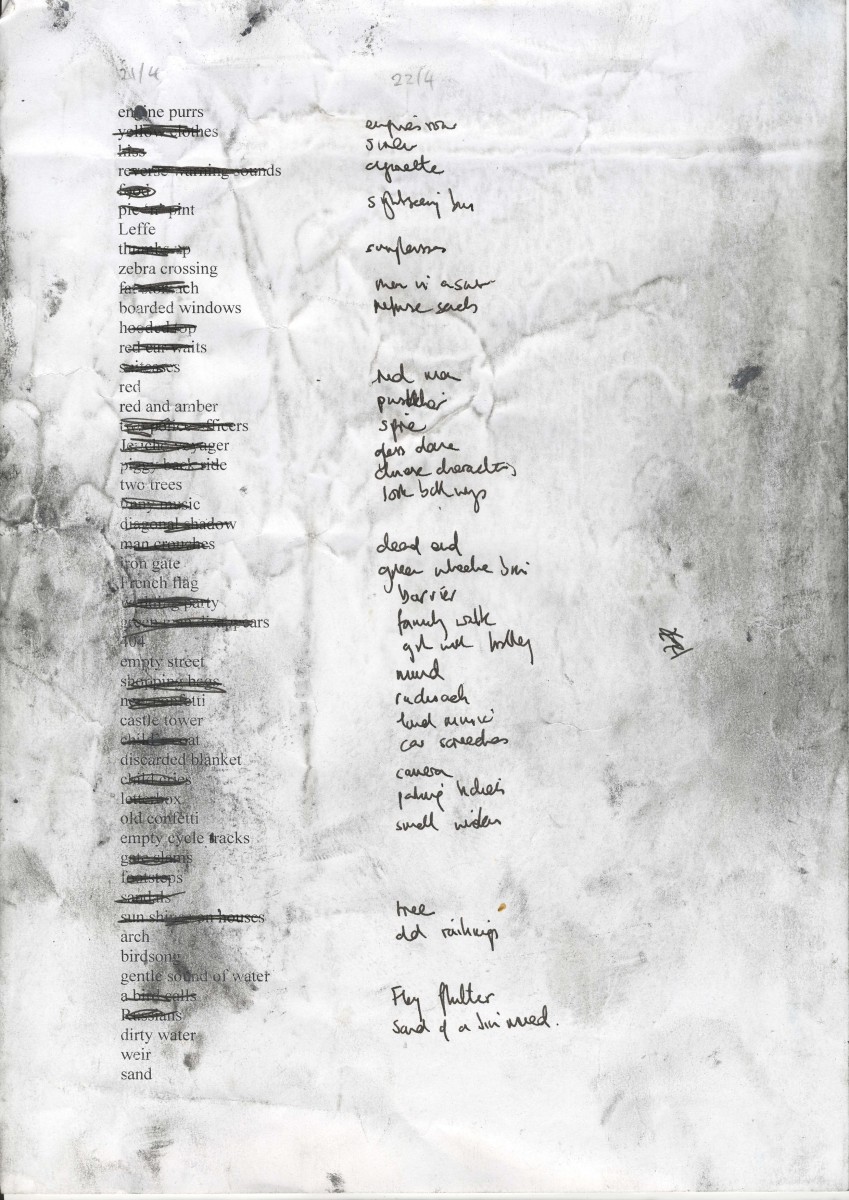 21/4
engine purrs
yellow clothes
hiss
reverse warning sounds
food
pie 'n' pint
Leffe
thumbs up
zebra crossing
fat stomach
boarded windows
hooded top
red car waits
suitcases
red
red and amber
two police officers
piggy back ride
two trees
diagonal shadow
man crouches
iron gate
French flag
wedding party
green man disappears
404
empty street
shopping bags
new confetti
castle tower
child's coat
discarded blanket
child cries
letterbox
old confetti
empty cycle tracks
gate slams
footsteps
sandals
sun shines on houses
arch
birdsong
gentle sound of water
a bird calls
Russians
dirty water
weir
sand
22/4
siren
cigarette
sightseeing bus
sunglasses
man in a suit
refuse sacks
red man
pushchair
spire
glass dome
chinese characters
look both ways
dead end
green wheelie bin
barrier
family walk
girl with trolley
rucksack
loud music
car screeches
camera
parking tickets
small window
tree
old railings
Flag flutter
Sound of a bin moved.